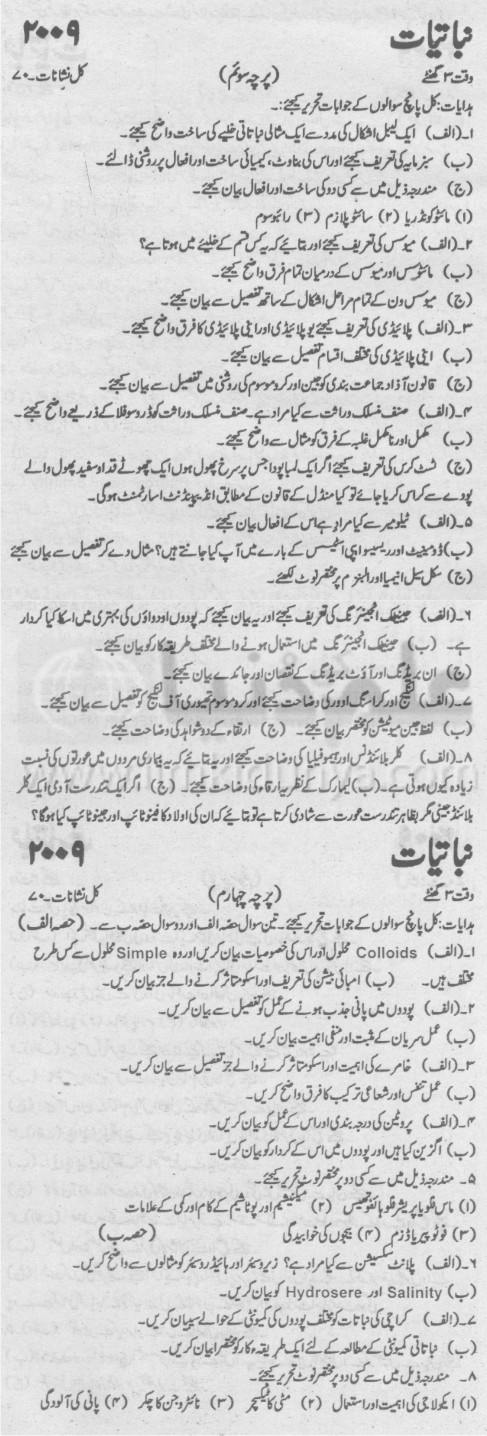 نباتیات ۲۰۰۹
وقت ۳ گھنٹے (پرچہ سوئم) کل نشانات۔۷۰
ہدایات: کل پانچ سوالوں کے جوابات تحریر کیجئے:۔
۱۔(الف) ایک لیبل اشکال کی مدد سے ایک مثالی نباتاتی خلیے کی ساخت واضح کیجئے۔
(ب) سبزمایہ کی تعریف کیجئے اور اس کی بناوٹ، کیمیائی ساخت اور افعال پر روشنی ڈالئے۔
(ج) مندرجہ ذیل میں سے کسی دو کی ساخت اور افعال بیان کیجئے۔
(۱) مائٹوکونڈریا (۲) سائٹوپلازم (۳) رائبوسوم
۲۔(الف) میوسس کی تعریف کیجئے اور بتائیے کہ یہ کس قسم کے خلیے میں ہوتا ہے؟
(ب) مائٹوسس اور میوسس کے درمیان تمام فرق واضح کیجئے۔
(ج) میوسس ون کے تمام مراحل اشکال کے ساتھ تفصیل سے بیان کیجئے۔
۳۔(الف) پلائیڈی کی تعریف کیجئے یوپلائیڈی اور اینی پلائیڈی کا فرق واضح کیجئے۔
(ب) اینی پلائیڈی کی مختلف اقسام تفصیل سے بیان کیجئے۔
(ج) قانون آزاد جماعت بندی کو جین اور کروموسوم کی روشنی میں تفصیل سے بیان کیجئے۔
۴۔(الف) صنف منسلک وراثت سے کیا مراد ہے۔ صنف منسلک وراثت کو ڈروسوفلا کے ذریعے واضح کیجئے۔
(ب) مکمل اور نامکمل غلبہ کے فرق کو مثال سے واضح کیجئے۔
(ج) ٹسٹ کراس کی تعریف کیجئے اگر ایک لمبا پودا جس پر سرخ پھول ہوں ایک چھوٹے قد اور سفید پھول والے
پودے سے کراس کر یا جائے تو کیا منڈل کے قانون کے مطابق انڈیپینڈنٹ اسارٹمنٹ ہوگی۔
۵۔(الف) ٹیلومیر سے کیا مراد ہے اس کے افعال بیان کیجئے۔
(ب) ڈومینیٹ اور ریسیسو اپی اسٹیسس کے بارے میں آپ کیا جانتے ہیں؟ مثال دے کر تفصیل سے بیان کیجئے
(ج) سکل سیل انیمیا اور البنزم پر مختصر نوٹ لکھئے۔
۶۔(الف) جینیٹک انجینئرنگ کی تعریف کیجئے اور یہ بیان کیجئے کہ پودوں اور دواؤں کی بہتری میں اسکا کیا کردار
ہے۔ (ب) جینیٹک انجینئرنگ میں استعمال ہونے والے مختلف طریقہ کار کو بیان کیجئے۔
(ج) ان بریڈنگ اور آؤٹ بریڈنگ کے نقصان اور فائدے بیان کیجئے۔
۷۔(الف) لنکیج اور کراسنگ اوور کی وضاحت کیجئے اور کروموسوم تھیوری آف لنکیج کو تفصیل سے بیان کیجئے۔
(ب) لفظ جین میوٹیشن کو مختصر بیان کیجئے۔ (ج) ارتقاء کے دو شواہد کی وضاحت کیجئے۔
۸۔(الف) کلر بلائنڈنس اور ہیموفیلیا کی وضاحت کیجئے اور یہ بتائیے کہ یہ بیماری مردوں میں عورتوں کی نسبت
زیادہ کیوں ہوتی ہے۔ (ب) لیمارک کے نظریہ ارتقاء کی وضاحت کیجئے۔ (ج) اگر ایک تندرست آدمی ایک کلر
بلائنڈ جینی مگر بظاہر تندرست عورت سے شادی کرتا ہے تو بتائیے کہ ان کی اولاد کا فینوٹائپ اور جینوٹائپ کیا ہوگا؟
نباتیات ۲۰۰۹
وقت ۳ گھنٹے (پرچہ چہارم) کل نشانات۔۷۰
ہدایات: کل پانچ سوالوں کے جوابات تحریر کیجئے۔ تین سوال حصہ الف اور دو سوال حصہ ب سے۔ (حصہ الف)
۱۔(الف) Colloids محلول اور اس کی خصوصیات بیان کریں اور وہ Simple محلول سے کس طرح
مختلف ہیں۔ (ب) امبائی بیشن کی تعریف اور اسکو متاثر کرنے والے جز بیان کریں۔
۲۔(الف) پودوں میں پانی جذب ہونے کے عمل کو تفصیل سے بیان کریں۔
(ب) عمل سریان کے مثبت اور منفی اہمیت بیان کریں۔
۳۔(الف) خامرے کی اہمیت اور اسکو متاثر کرنے والے جز تفصیل سے بیان کریں۔
(ب) عمل تنفس اور شعاعی ترکیب کا فرق واضح کریں۔
۴۔(الف) پروٹین کی درجہ بندی اور اس کے عمل کو بیان کریں۔
(ب) اگزین کیا ہیں اور پودوں میں اس کے کردار کو بیان کریں۔
۵۔ مندرجہ ذیل میں سے کسی دو پر مختصر نوٹ تحریر کیجئے۔
(۱) ماس فلو یا پریشر فلو ہائپوتھیسس (۲) میگنیشیم اور پوٹاشیم کے کام اور کمی کے علامات
(۳) فوٹو پیریاڈزم (۴) بیجوں کی خوابیدگی (حصہ ب)
۶۔(الف) پلانٹ سکسیشن سے کیا مراد ہے؟ زیروسیئر اور ہائیڈروسیئر کو مثالوں سے واضح کریں۔
(ب) Salinity اور Hydrosere کو بیان کریں۔
۷۔(الف) کراچی کی نباتات کو مختلف پودوں کی کمیونٹی کے حوالے سے بیان کریں۔
(ب) نباتاتی کمیونٹی کے مطالعہ کے لئے ایک طریقہ کار کو مختصراً بیان کریں۔
۸۔ مندرجہ ذیل میں سے کسی دو پر مختصر نوٹ تحریر کیجئے۔
(۱) ایکولاجی کی اہمیت اور استعمال (۲) مٹی کا ٹیکسچر (۳) نائٹروجن کا چکر (۴) پانی کی آلودگی